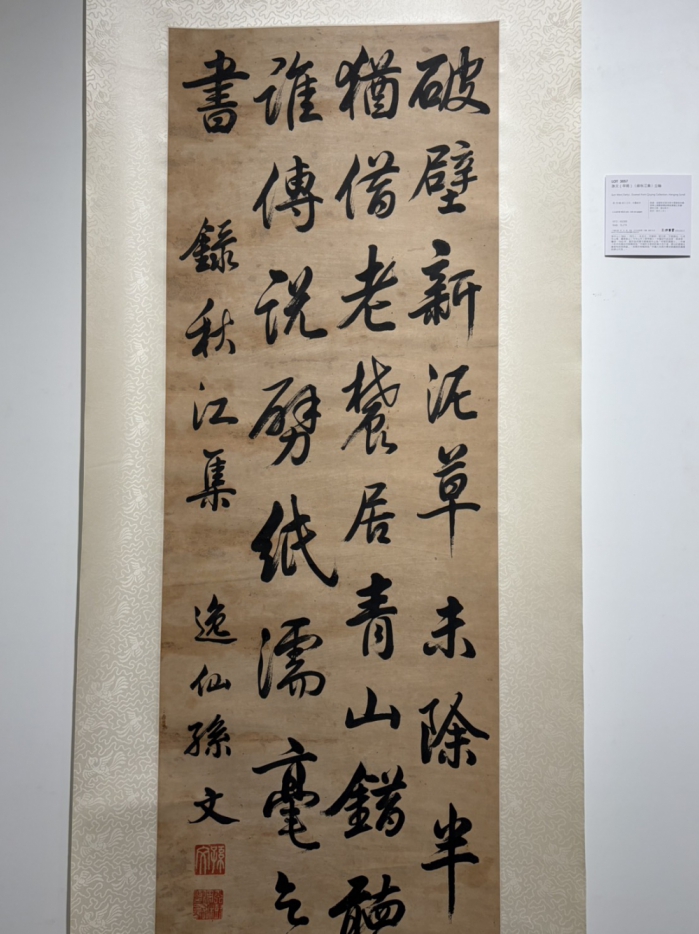 破壁新泥草未除半
猶借老辳居青山錯聽
誰傳說劈紙濡毫乞
書 錄秋江集 逸仙孫文